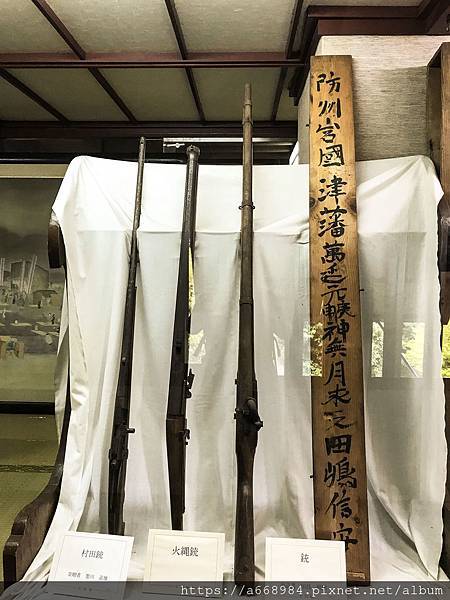 防州岩國津藩萬延元神無月末之田嶋信
村田銃
寄贈者
火縄銃
銃
https://a668984.pixnet.net/album